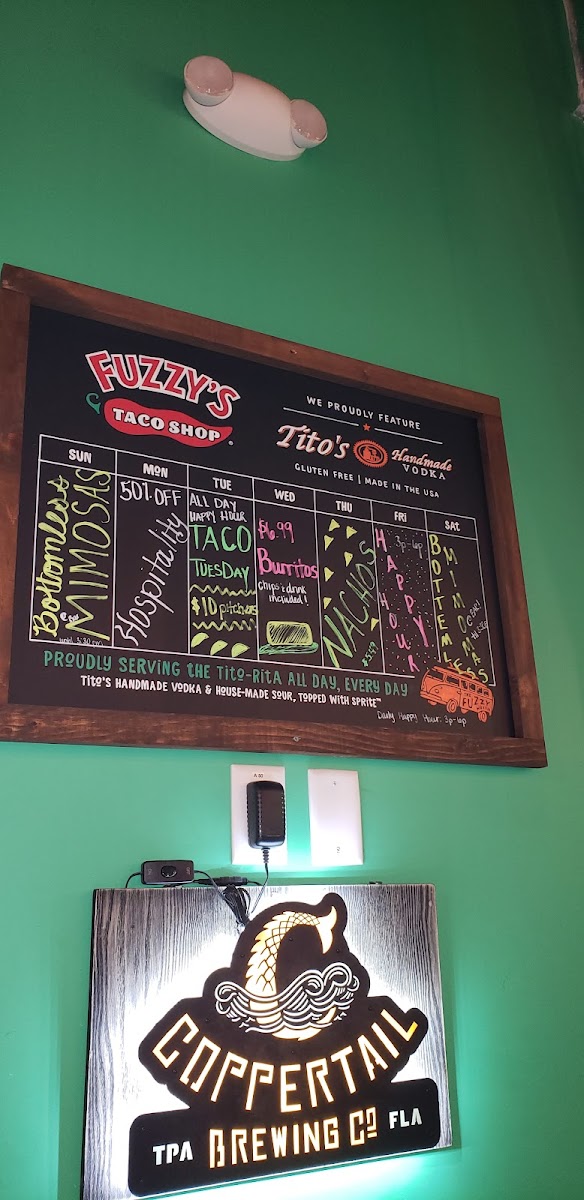 FUZZY'S
TACO SHOP
WE PROUDLY FEATURE
Tito's Handmade
VODKA
GLUTEN FREE | MADE IN THE USA
SUN
Bottomless
MIMOSAS
MON
50% OFF
Hospitality
TUE
ALL DAY
HAPPY HOUR
TACO
TUESDAY
$10 pitchers
WED
$6.99
Burritos
chips & drink
included!
THU
NACHOS
$5.99
FRI
3p-6p
HAPPY
HOUR
SAT
BOTTEMLESS
MIMOMA
PROUDLY SERVING THE TITO-RITA ALL DAY, EVERY DAY
TITO'S HANDMADE VODKA & HOUSE-MADE SOUR, TOPPED WITH SPRITE™
FUZZY
Daily Happy Hour: 3p-6p
A 40
COPPERTAIL
TPA BREWING CO FLA